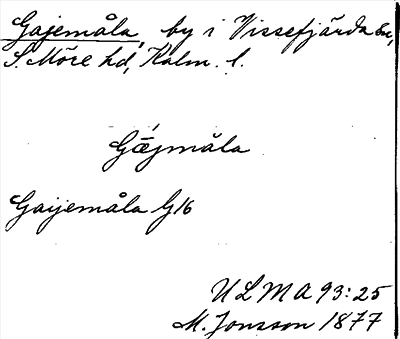 Gajemåla, by i Vissefjärda sn,
S. Möre hd, Kalm. l.
Gǣjmåla
Gaijemåla G16
ULMA 93:25
M. Jonsson 1877